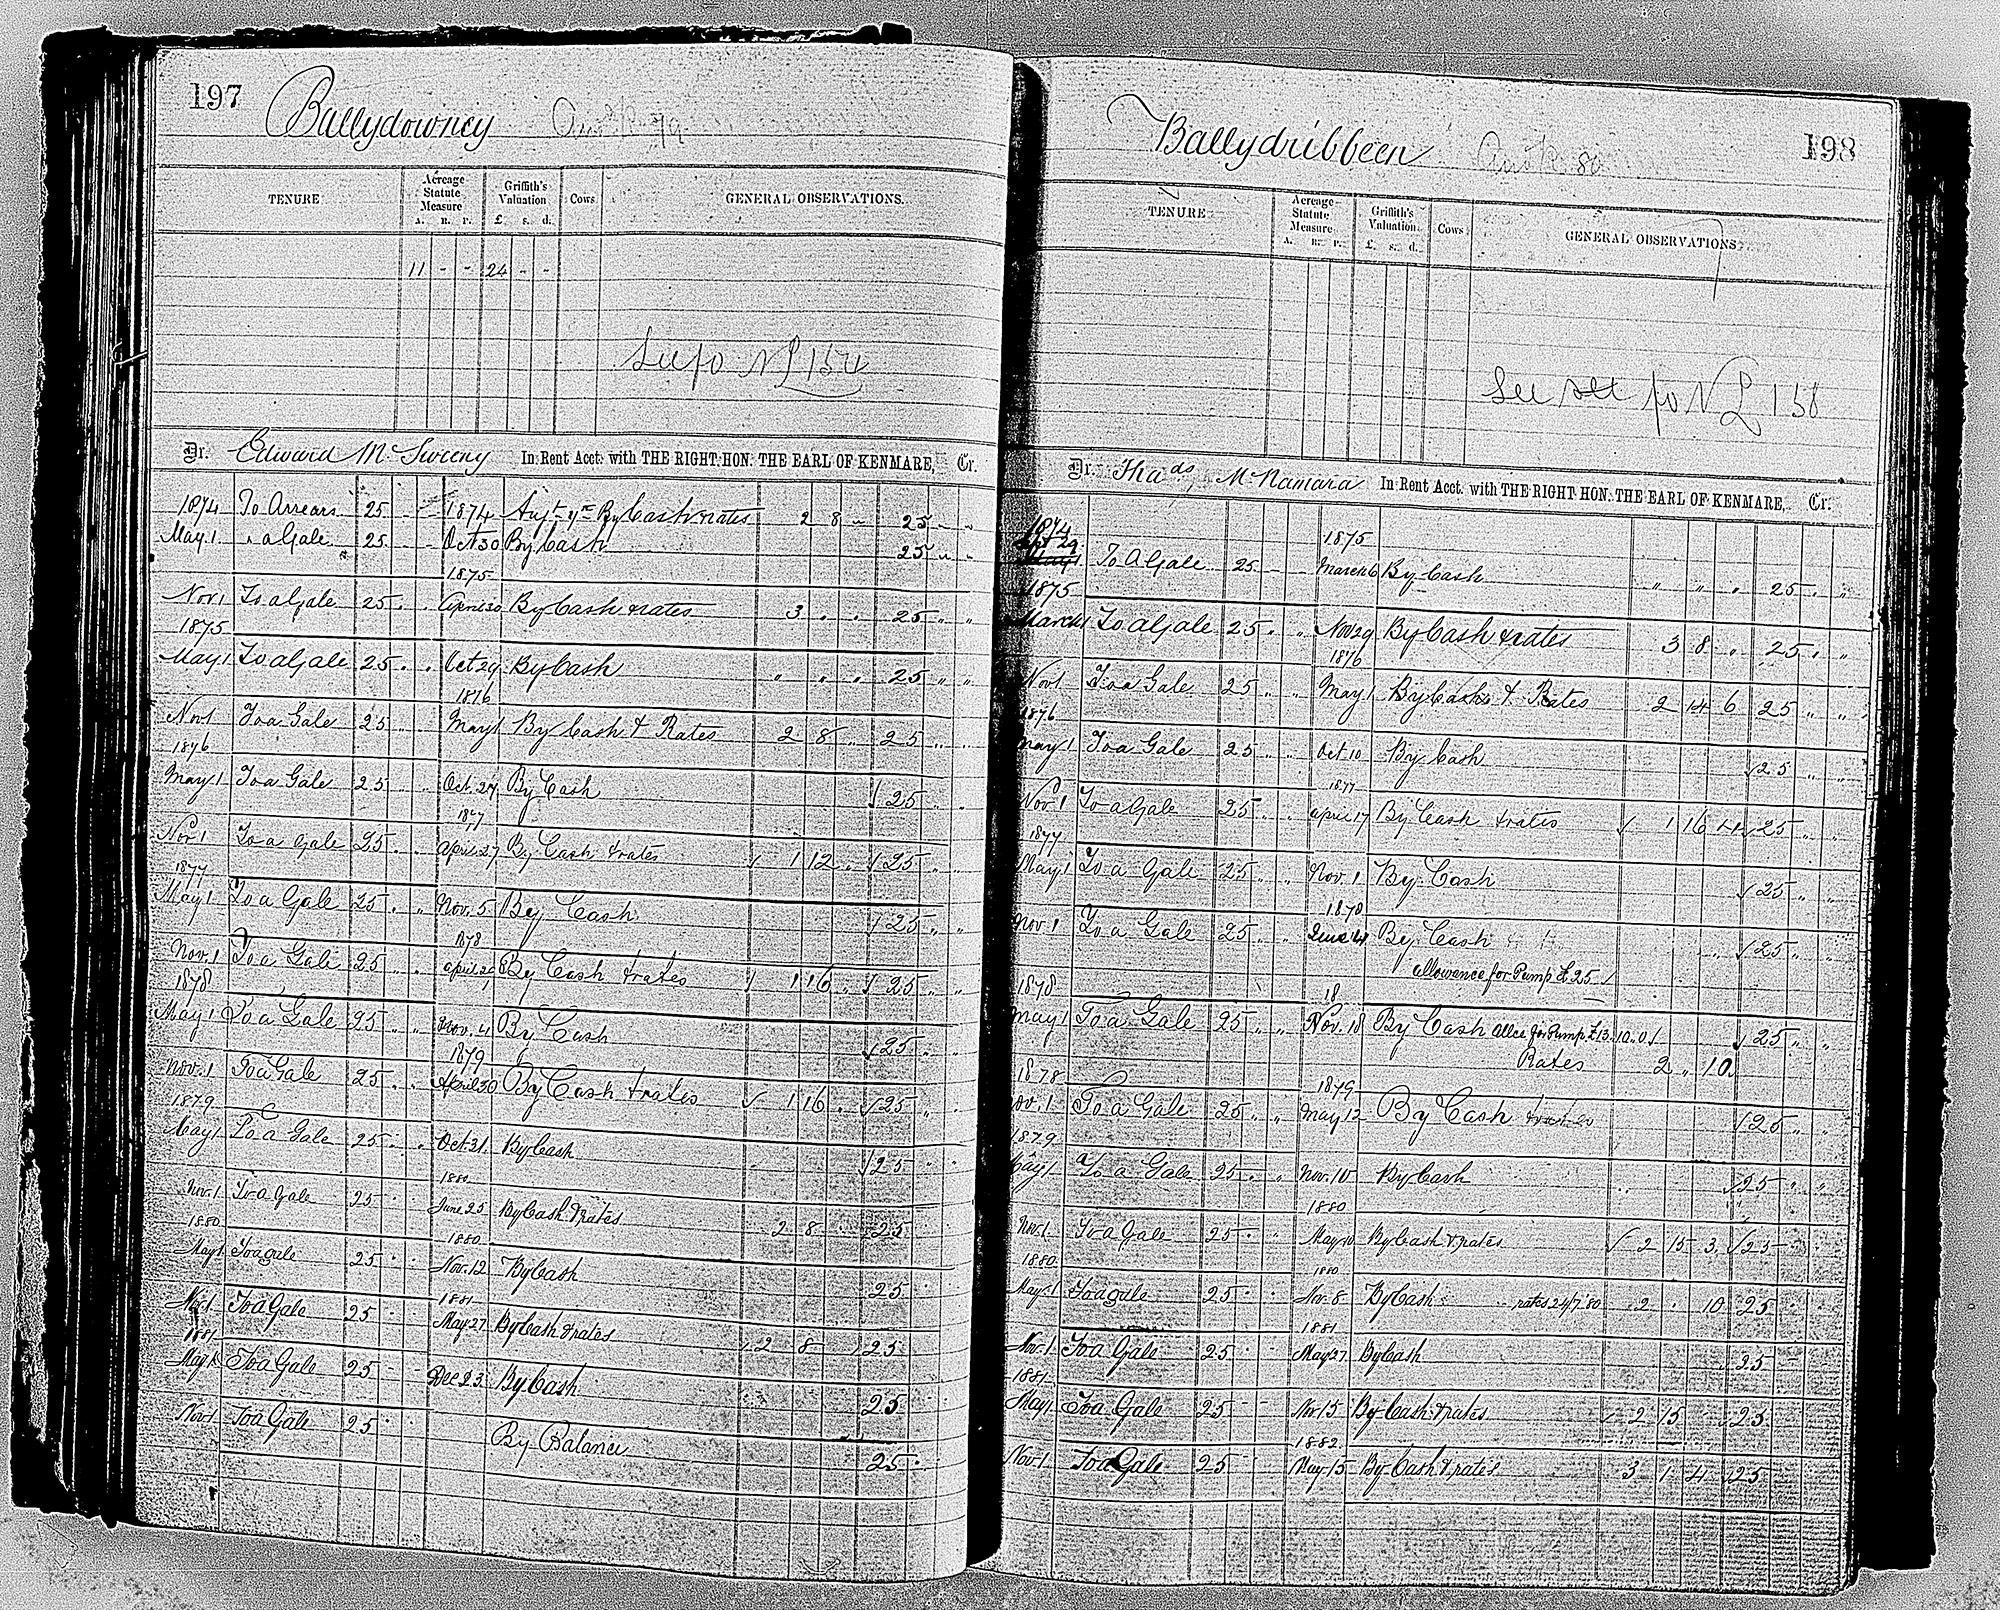 197 Ballydowney
TENURE Acreage Statute Measure Griffith's Valuation Cows GENERAL OBSERVATIONS.
A. R. P. £. s. d.
11 - - 24 - -
See fo N L 154
Dr. Edward McSweeny In Rent Acct. with THE RIGHT HON. THE EARL OF KENMARE, Cr.
1874 To Arrears 25 - - 1874 By Cash & rates 2 8 " 25 " "
May 1 " a Gale 25 - - Oct 30 By Cash 25 " "
1875
Nov 1 To a Gale 25 . . April 30 By Cash & rates 3 . . 25 " "
1875
May 1 To a Gale 25 . . Oct 29 By Cash " " " 25 " "
1876
Nov 1 To a Gale 25 . . May 1 By Cash & Rates 2 8 " 25 " "
1876
May 1 To a Gale 25 . . Oct. 27 By Cash 25 " "
1877
Nov 1 To a Gale 25 . . April 27 By Cash & rates 1 12 . 25 " "
1877
May 1 To a Gale 25 . . Nov. 5 By Cash 25 " "
1878
Nov. 1 To a Gale 25 . . April 29 By Cash & rates 1 16 . 25 " "
1878
May 1 To a Gale 25 . . Nov. 4 By Cash 25 " "
1879
Nov. 1 To a Gale 25 . . April 30 By Cash & rates 1 16 . 25 " "
1879
May 1 To a Gale 25 . . Oct. 31 By Cash 25 " "
1880
Nov. 1 To a Gale 25 . . June 25 By Cash & rates 2 8 25
1880 1880
May 1 To a gale 25 . . Nov. 12 By Cash 25
1881
Nov. 1 To a Gale 25 . . May 27 By Cash & rates 2 8 25
1881
May 1 To a Gale 25 - - Dec 23 By Cash 25
Nov 1 To a Gale 25 . . By Balance 25
Ballydribbeen 198
TENURE Acreage Statute Measure Griffith's Valuation. Cows GENERAL OBSERVATIONS.
A. R. P. £. s. d.
See fo N L 158
Dr. Thads. McNamara In Rent Acct. with THE RIGHT HON. THE EARL OF KENMARE, Cr.
1874 1875
Sept 29 To a Gale 25 - - March 6 By Cash " " " 25 " "
1875
March To a Gale 25 . . Nov 29 By Cash & rates 3 8 " 25 " "
1876
Nov 1 To a Gale 25 . . May 1 By Cash & Rates 2 14 6 25 " "
1876
May 1 To a Gale 25 . . Oct 10 By Cash 25 " "
1877
Nov. 1 To a Gale 25 . . April 17 By Cash & rates 1 16 25 " "
1877
May 1 To a Gale 25 . . Nov. 1 By Cash 25 " "
1878
Nov 1 To a Gale 25 . . June 4 By Cash 25 " "
allowance for Pump £25
1878 18
May 1 To a Gale 25 . . Nov. 18 By Cash allce for Pump £13.10.0 25 " "
Rates 2 " 10
1878 1879
Nov. 1 To a Gale 25 . . May 12 By Cash 25 " "
1879
May 1 To a Gale 25 . . Nov. 10 By Cash 25 " "
1880
Nov. 1 To a Gale 25 . . May 10 By Cash & rates 2 15 3 25
1880 1880
May 1 To a gale 25 . . Nov. 8 By Cash rates 24/7 '80 2 . 10 25
1881
Nov. 1 To a Gale 25 . . May 27 By Cash 25
1881
May 1 To a Gale 25 - - Nov 15 By Cash & rates 2 15 25
1882
Nov 1 To a Gale 25 May 15 By Cash & rates 3 1 4 25